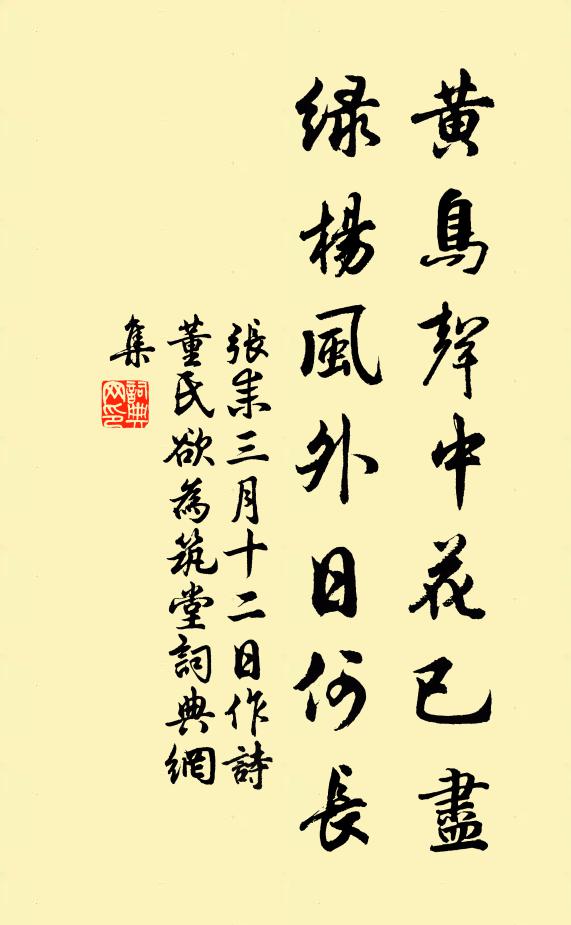 黄鳥聲中花已盡
綠楊風外日何長
張耒三月十二日作詩
董氏欲為筑堂詞典網
集
詞典
网印